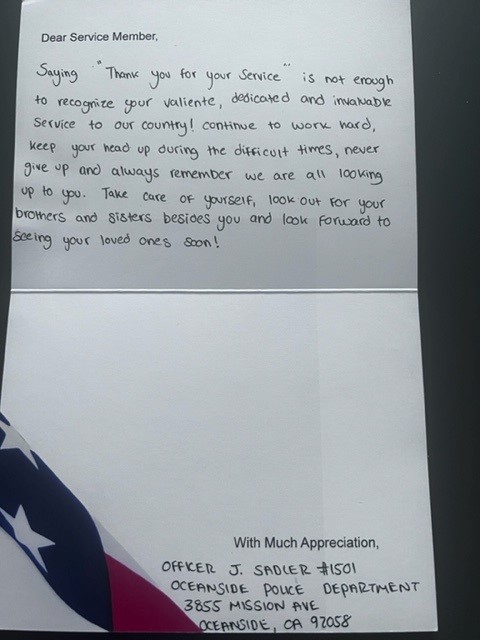 Dear Service Member,
Saying "Thank you for your Service" is not enough
to recognize your valiente, dedicated and invaluable
Service to our country! continue to work hard,
keep your head up during the difficult times, never
give up and always remember we are all looking
up to you. Take care of yourself, look out for your
brothers and sisters besides you and look forward to
seeing your loved ones soon!
With Much Appreciation,
OFFICER J. SADLER #1501
OCEANSIDE POLICE DEPARTMENT
3855 MISSION AVE
OCEANSIDE, CA 92058